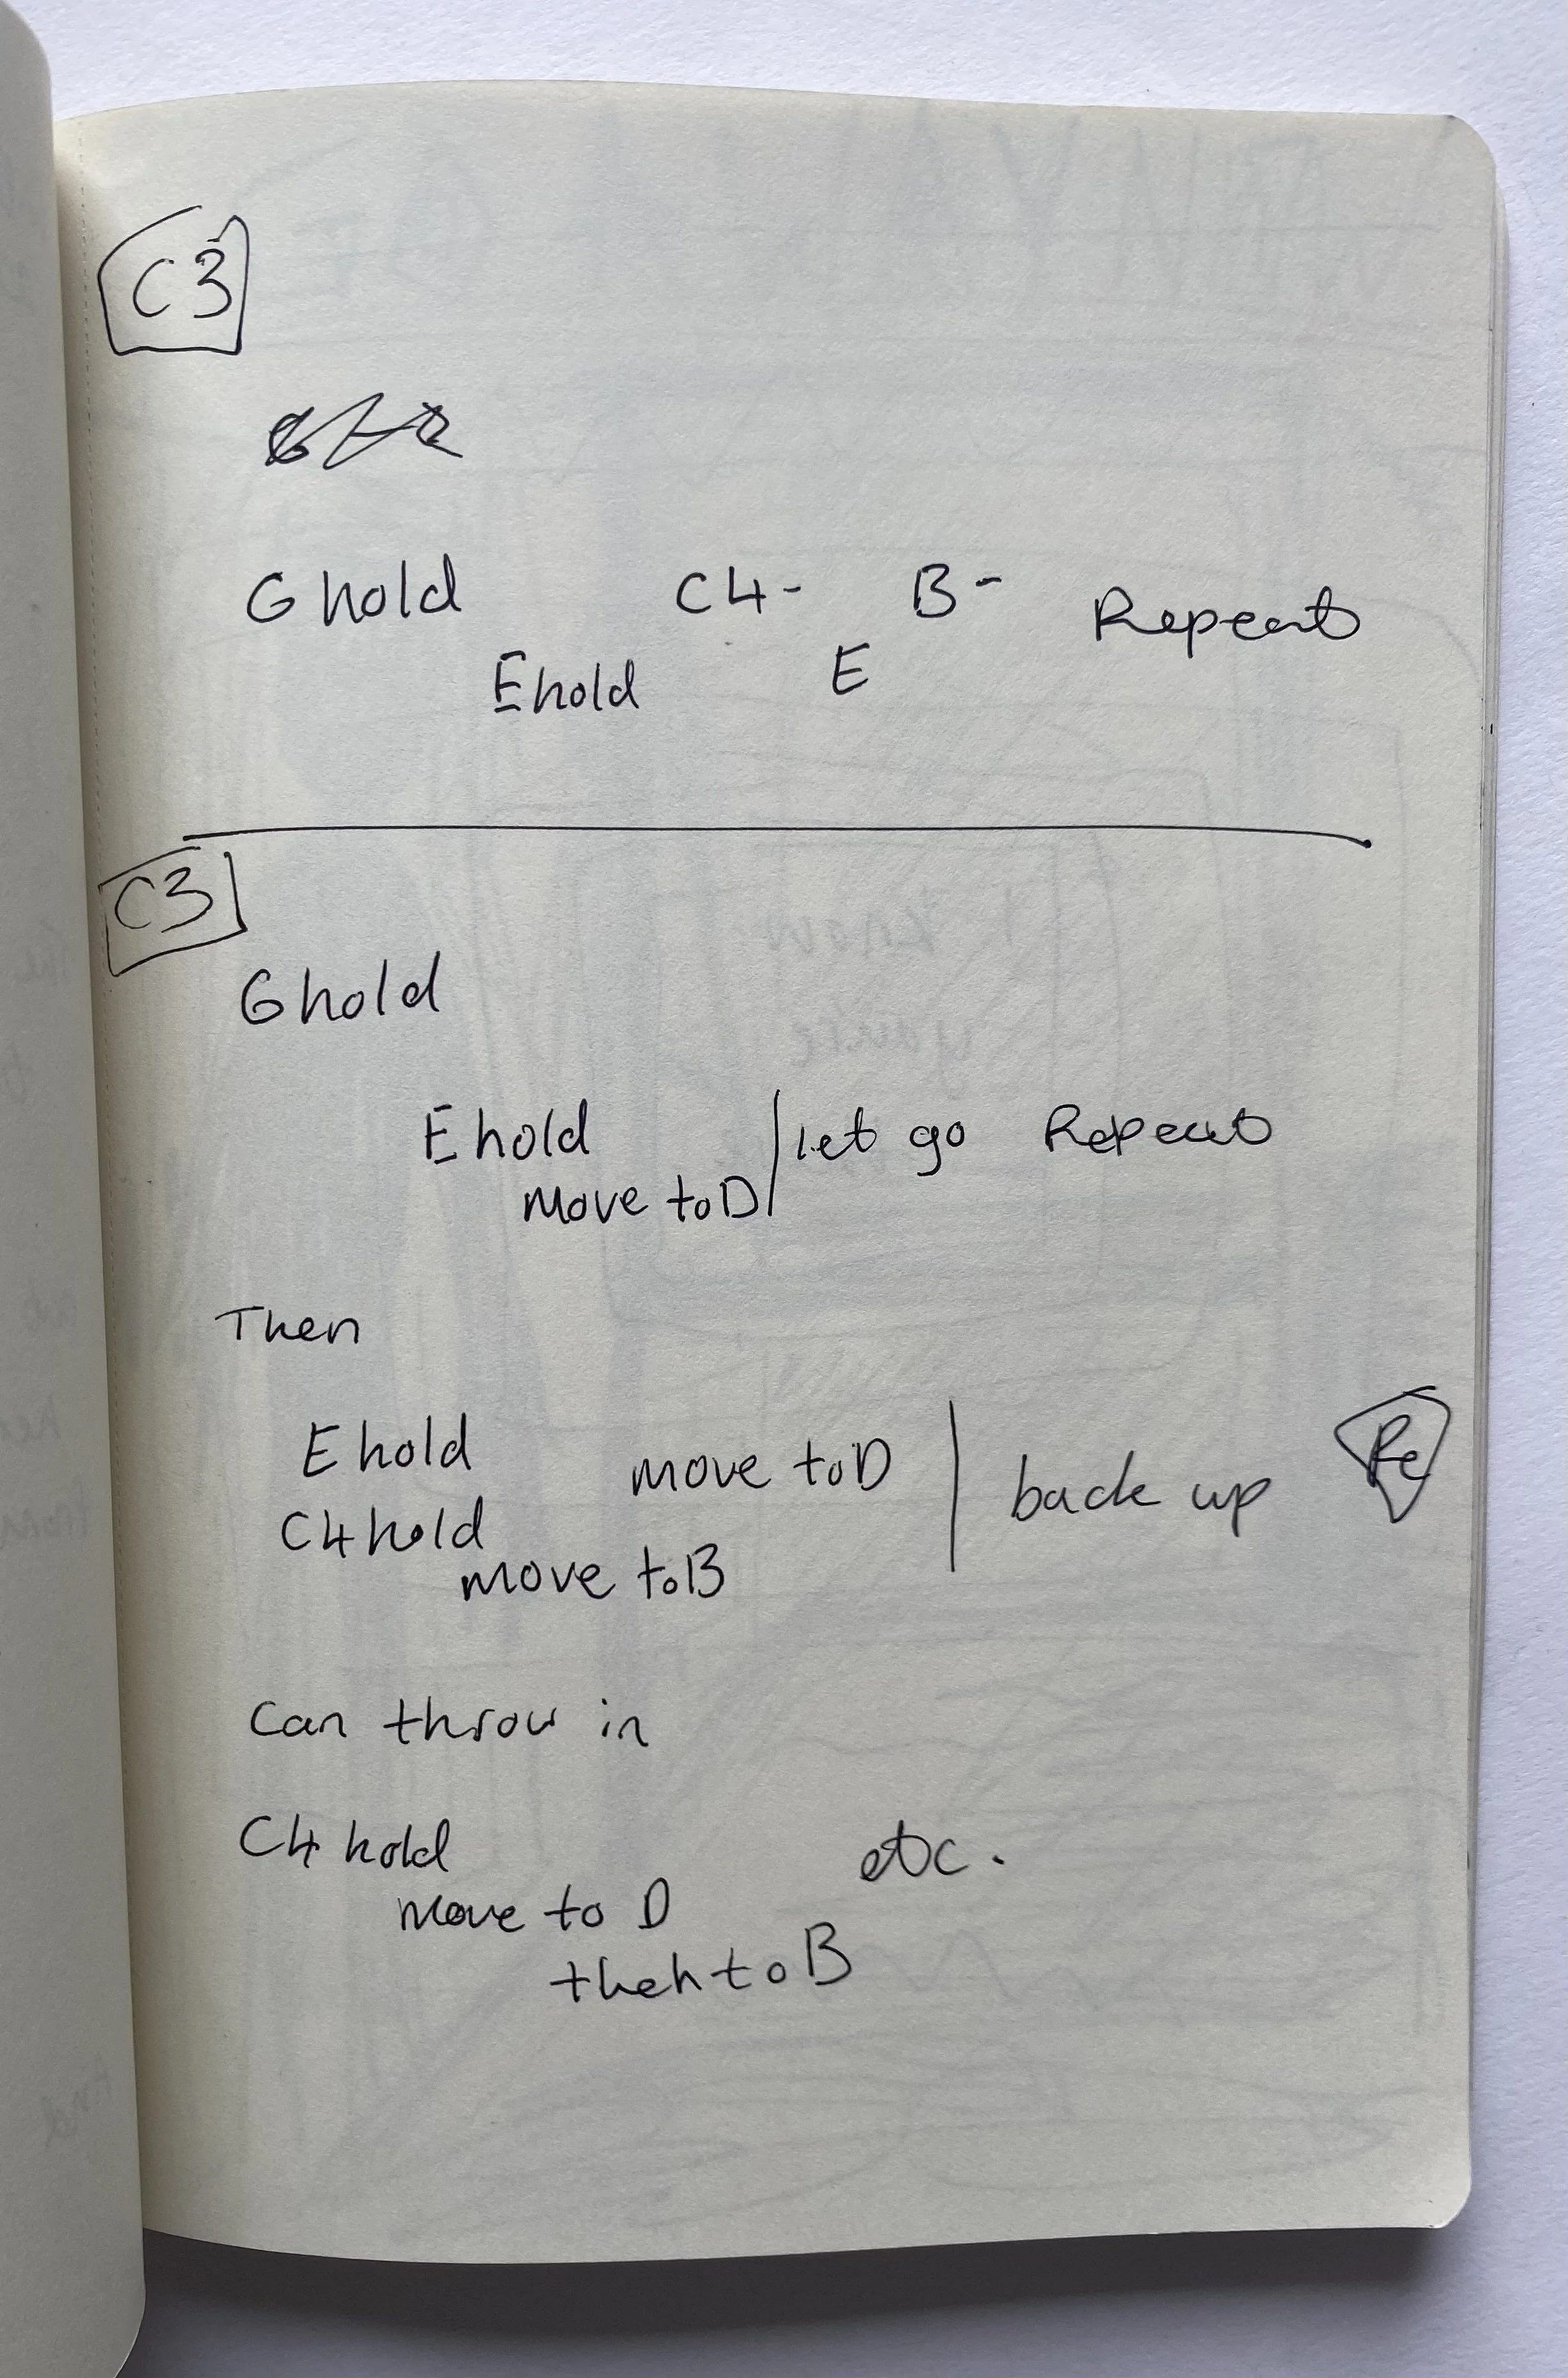 C3
G hold C4- B- Repeat
E hold E
C3
G hold
E hold let go Repeat
move to D
Then
E hold move to D back up Re
C4 hold
move to B
Can throw in
C4 hold etc.
move to D
then to B